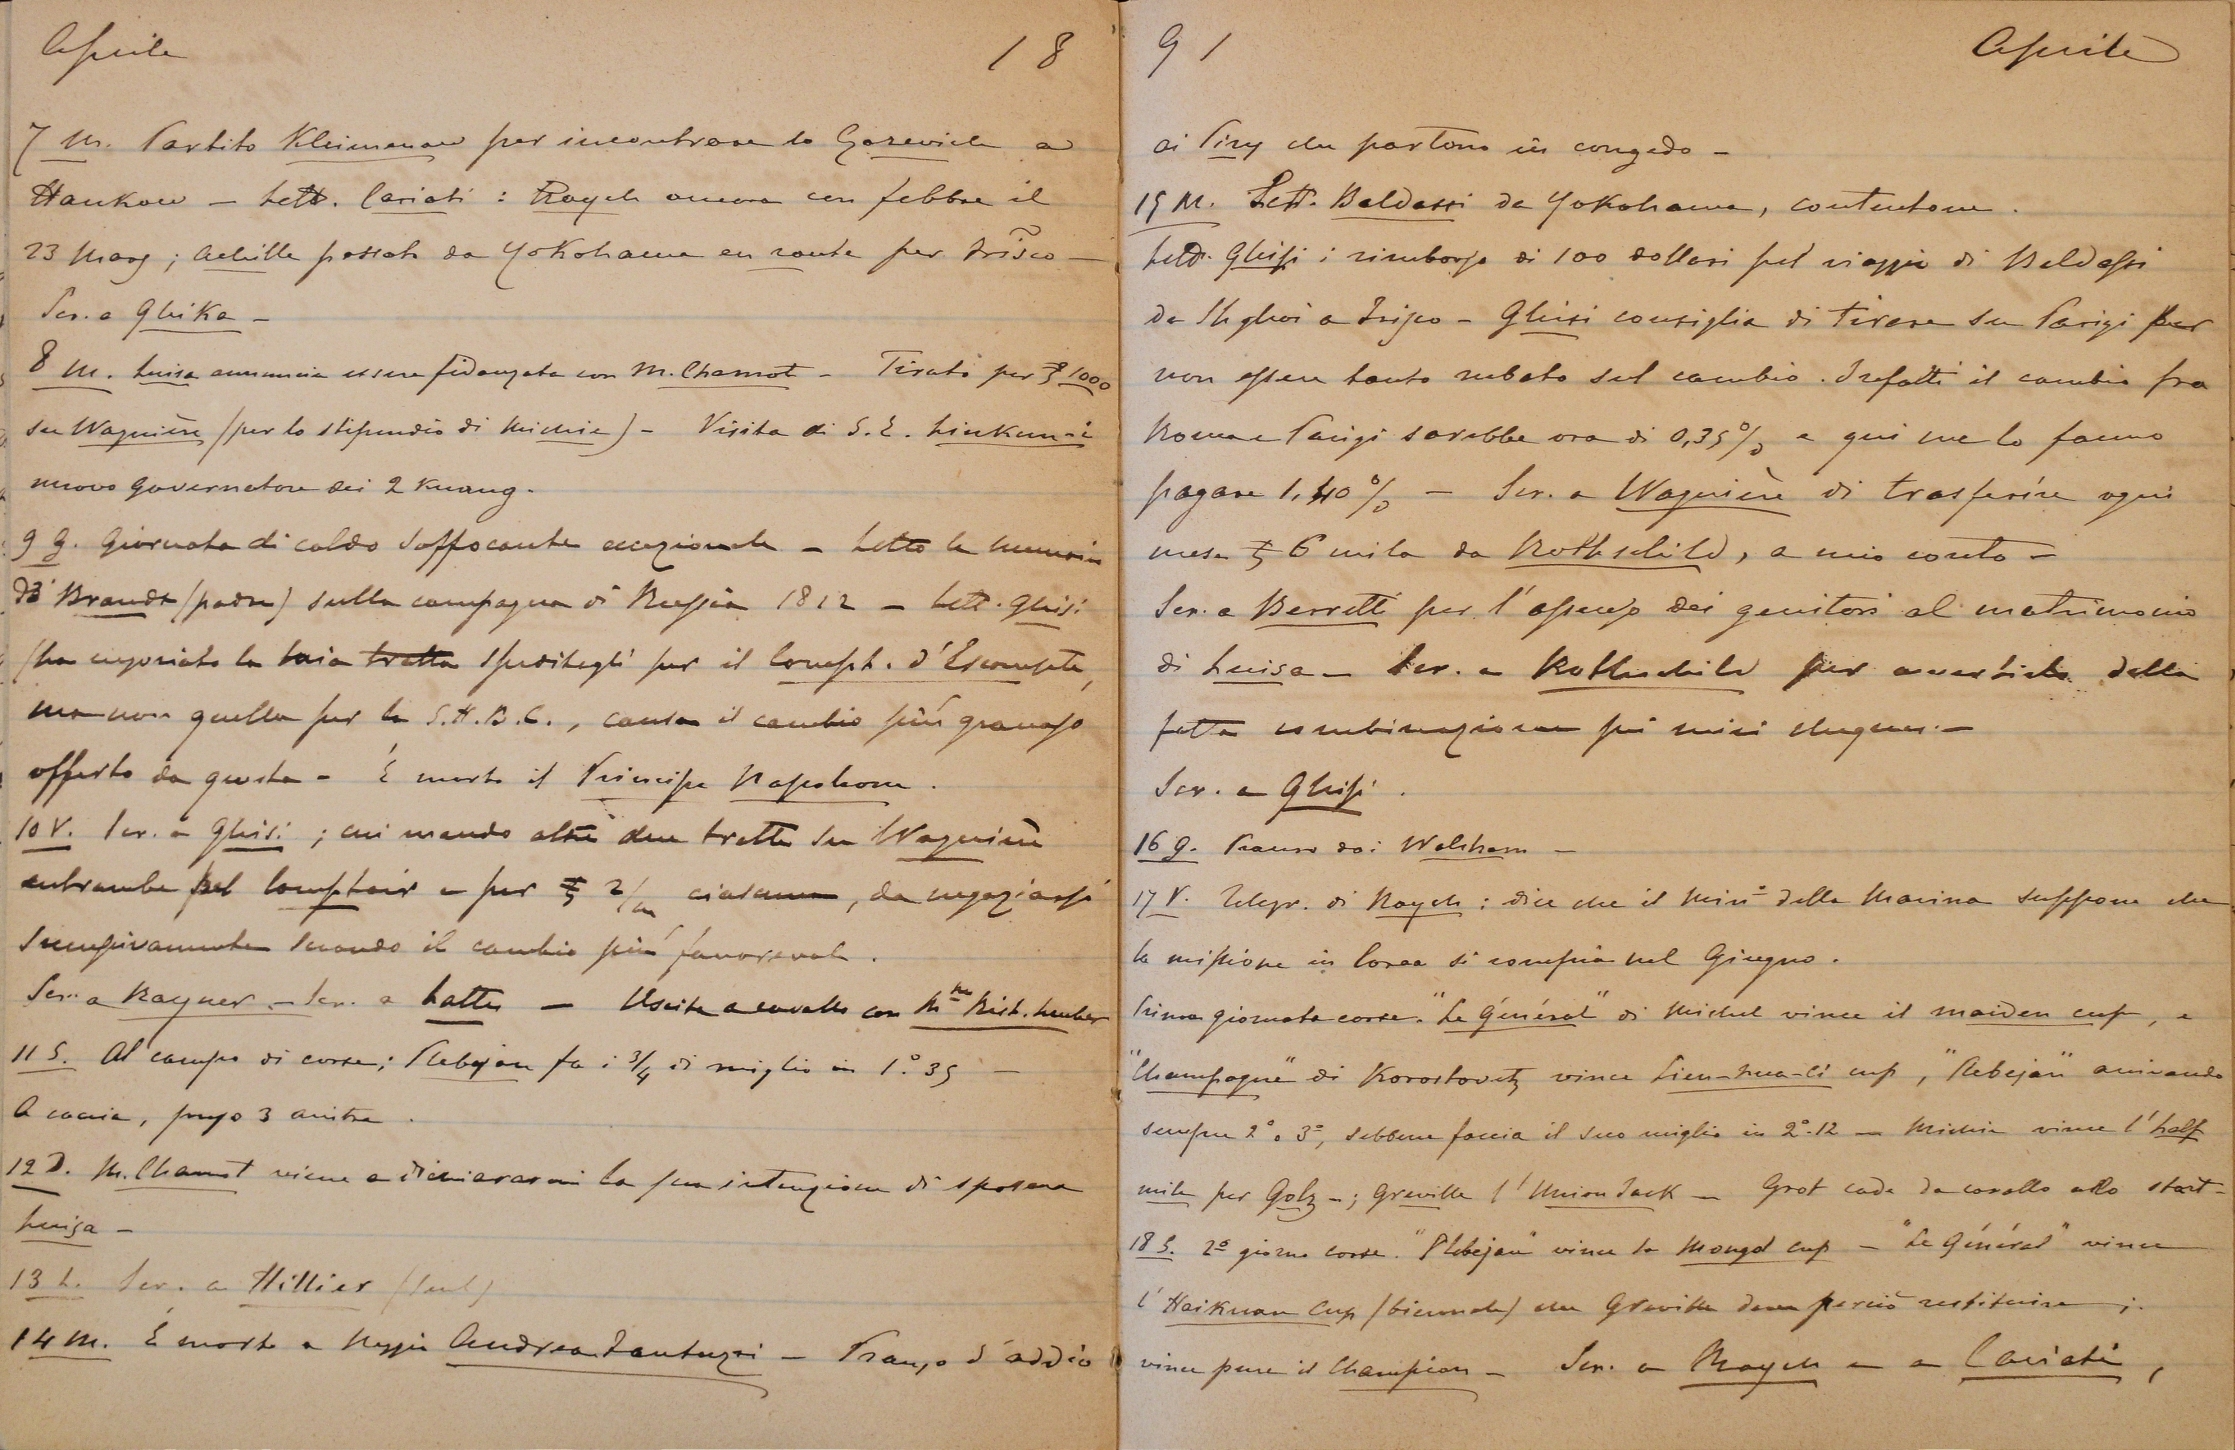 Aprile 18
7 M. Partito Kleimenow per incontrare lo Czarevich a
Hankow – Lett. Cariati : Raych ancora con febbre il
23 Marz ; Achille passato da Yokohama en route per Frisco –
Scr. a Ghika –
8 M. Luisa annuncia essere fidanzata con M. Chamot – Tirato per ₤ 1000
su Wagnière (per lo stipendio di Michie) – Visita di S. E. Liukun-i
nuovo governatore dei 2 Kuang.
9 G. Giornata di caldo soffocante eccezionale – Letto le memorie
di Brandt (padre) sulla campagna di Russia 1812 – Lett. Ghisi
(ha negoziato la mia tratta speditagli per il Compt. d'Escompte,
ma non quella per la S.H.B.C., causa il cambio più gravoso
offerto da questa – È morto il Principe Napoleone .
10 V. Scr. a Ghisi ; cui mando altre due tratte su Wagnière
entrambe pel Comptoir e per ₤ 2/m ciascuna, da negoziarsi
successivamente secondo il cambio più favorevole .
Scr. a Rayner – Scr. a Latter – Uscita a cavallo con Mme Rist.
11 S. Al campo di corse; Plebejan fa i 3/4 di miglio in 1.° 35 –
A caccia, 3 anitre .
12 D. M. Chamot viene a dichiararmi la sua intenzione di sposare
Luisa –
13 L. Scr. a Hillier (Seul)
14 M. È morto a Reggio Andrea Fantuzzi – Pranzo d'addio
91 Aprile
ai Piry che partono in congedo –
15 M. Lett. Baldassi da Yokohama, contentone .
Lett. Ghisi : rimborso di 100 dollari pel viaggio di Baldassi
da Shghai a Frisco – Ghisi consiglia di tirare su Parigi per
non essere tanto rubato sul cambio . Infatti il cambio fra
Roma e Parigi sarebbe ora di 0,35% e qui me lo fanno
pagare 1.40% – Scr. a Wagnière di trasferire ogni
mese ₤ 6 mila da Rothschild, a mio conto –
Scr. a Berretti per l'assenso dei genitori al matrimonio
di Luisa – Scr. a Rothschild per avvertirlo della
fatta combinazione pei miei chèques. –
Scr. a Ghisi .
16 G. Pranzo dai Walsham –
17 V. Telegr. di Raych : dice che il Min° della Marina suppone che
la missione in Corea si compia nel Giugno .
Prima giornata corse. "Le Général" di Michel vince il maiden cup, e
"Champagne" di Korostovetz vince Lien-hua-ci cup, "Plebejan" arrivando
sempre 2° o 3°, sebbene faccia il suo miglio in 2°-12 – Michie vince l'half
mile per Golz – ; Greville l'Union Jack – Grot cade da cavallo allo start –
18 S. 2° giorno corse. "Plebejan" vince la Mongol cup – "Le Général" vince
l'Haikuan Cup (biennale) che Greville deve perciò restituire ;
vince pure il Champion – Scr. a Raych e a Cariati ,